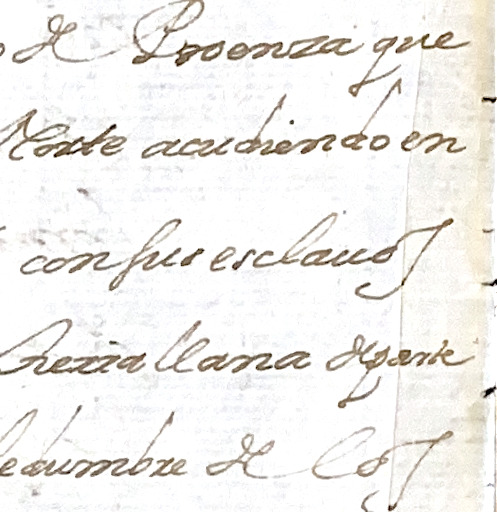 de Proenza que
Norte acudiendo en
con sus esclauos
tierra llana de parte
dumbre de los